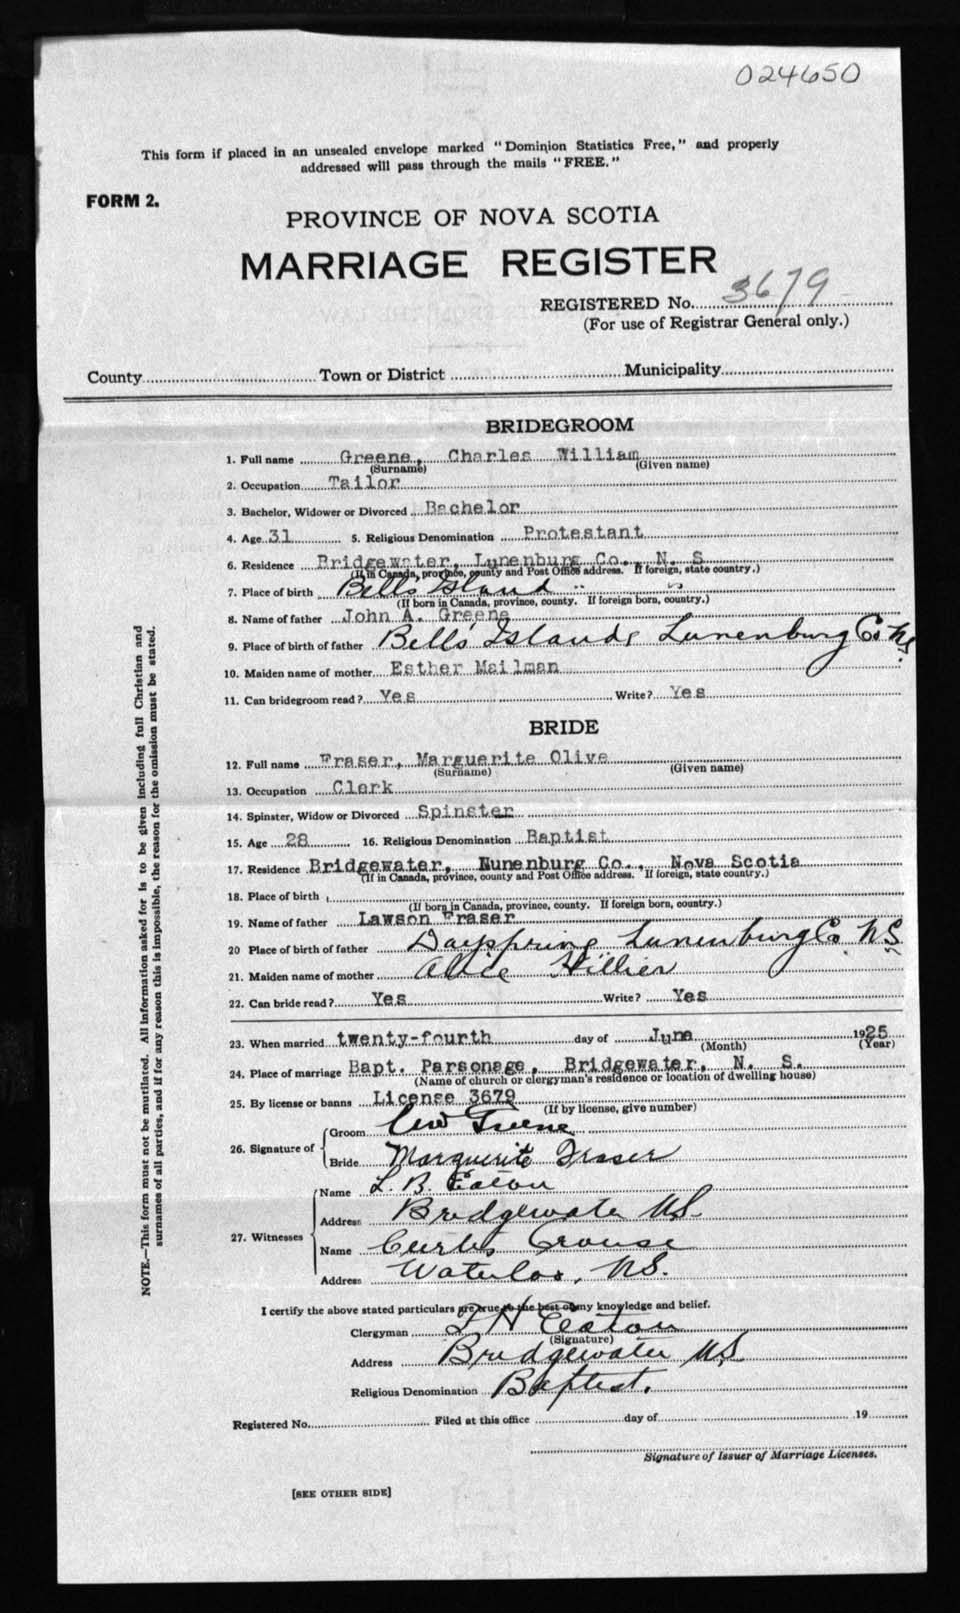 024650
This form if placed in an unsealed envelope marked "Dominion Statistics Free," and properly
addressed will pass through the mails "FREE."
FORM 2.
PROVINCE OF NOVA SCOTIA
MARRIAGE REGISTER
REGISTERED No. 3679
(For use of Registrar General only.)
County Town or District Municipality
BRIDEGROOM
1. Full name Greene, Charles William
(Surname) (Given name)
2. Occupation Tailor
3. Bachelor, Widower or Divorced Bachelor
4. Age 31 5. Religious Denomination Protestant
6. Residence Bridgewater, Lunenburg Co. N. S
(If in Canada, province, county and Post Office address. If foreign, state country.)
7. Place of birth Bells Island " "
(If born in Canada, province, county. If foreign born, country.)
8. Name of father John A. Greene
9. Place of birth of father Bells Islands Lunenburg Co NS.
10. Maiden name of mother Esther Mailman
11. Can bridegroom read? Yes Write? Yes
BRIDE
12. Full name Fraser, Marguerite Olive
(Surname) (Given name)
13. Occupation Clerk
14. Spinster, Widow or Divorced Spinster
15. Age 28 16. Religious Denomination Baptist
17. Residence Bridgewater, Nunenburg Co., Nova Scotia
(If in Canada, province, county and Post Office address. If foreign, state country.)
18. Place of birth
(If born in Canada, province, county. If foreign born, country.)
19. Name of father Lawson Fraser
20 Place of birth of father Dayspring Lunenburg Co. NS
21. Maiden name of mother Alice Hillier
22. Can bride read? Yes Write? Yes
23. When married twenty-fourth day of June 1925
(Month) (Year)
24. Place of marriage Bapt. Parsonage, Bridgewater, N. S.
(Name of church or clergyman's residence or location of dwelling house)
25. By license or banns License 3679
(If by license, give number)
26. Signature of
Groom CW Greene
Bride Marguerite Fraser
27. Witnesses
Name L. B. Eaton
Address Bridgewater NS.
Name Curtis Crouse
Address Waterloo, NS.
I certify the above stated particulars are true to the best of my knowledge and belief.
Clergyman J H Eaton
(Signature)
Address Bridgewater NS
Religious Denomination Baptist.
Registered No. Filed at this office day of 19
Signature of Issuer of Marriage Licenses.
[SEE OTHER SIDE]
NOTE.—This form must not be mutilated. All information asked for is to be given including full Christian and
surnames of all parties, and if for any reason this is impossible, the reason for the omission must be stated.